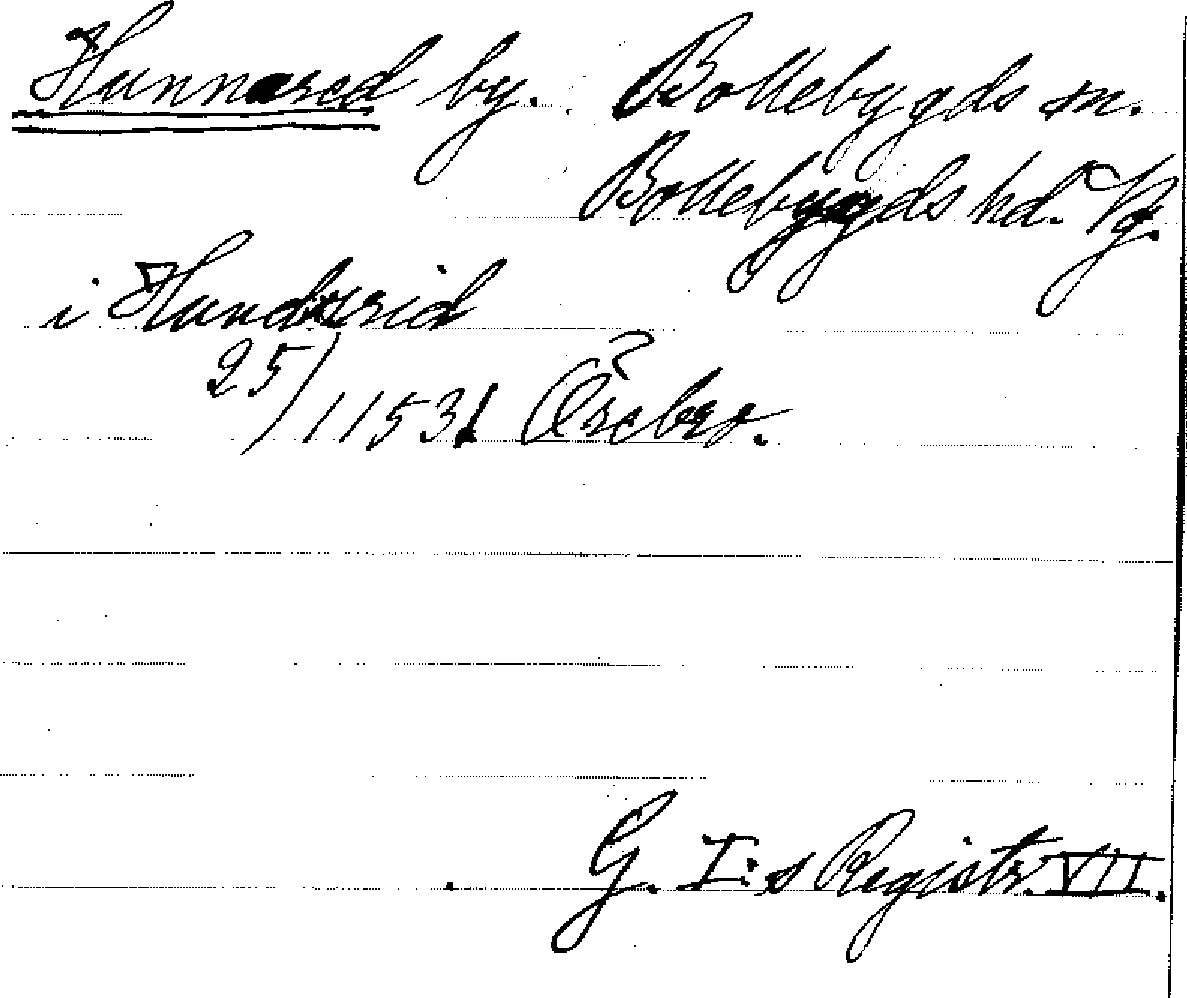 Hunnared by. Bollebygds sn.
Bollebygds hd. Vg.
i Hundzrid
25/11 1531 Örebro.
G. I:s Registr. VII.